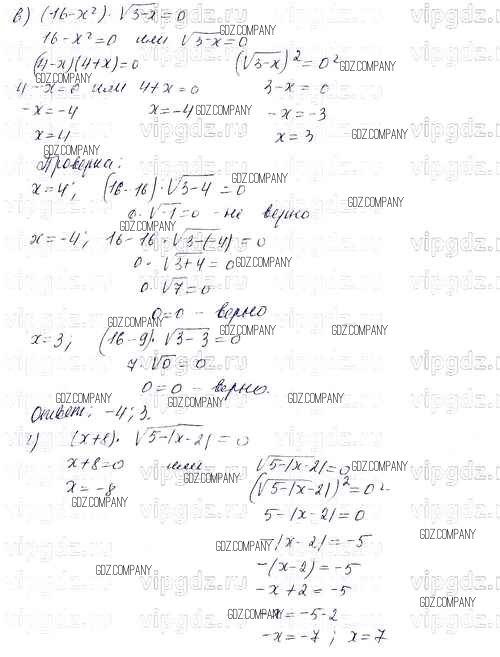 в) (16-x²)·√3-x=0
16-x²=0 или √3-x=0
(4-x)(4+x)=0 (√3-x)²=0²
4-x=0 или 4+x=0 3-x=0
-x=-4 x=-4 -x=-3
x=4 x=3
Проверка:
x=4; (16-16)·√3-4=0
0·√-1=0 - не верно
x=-4; 16-16·√3-(-4)=0
0·√3+4=0
0·√7=0
0=0 - верно
x=3; (16-9)·√3-3=0
7·√0=0
0=0 - верно.
Ответ: -4; 3.
г) (x+8)·√5-|x-2|=0
x+8=0 или √5-|x-2|=0
x=-8 (√5-|x-2|)²=0²
5-|x-2|=0
-|x-2|=-5
-(x-2)=-5
-x+2=-5
-x=-5-2
-x=-7; x=7
GDZ.COMPANY
vipgdz.ru